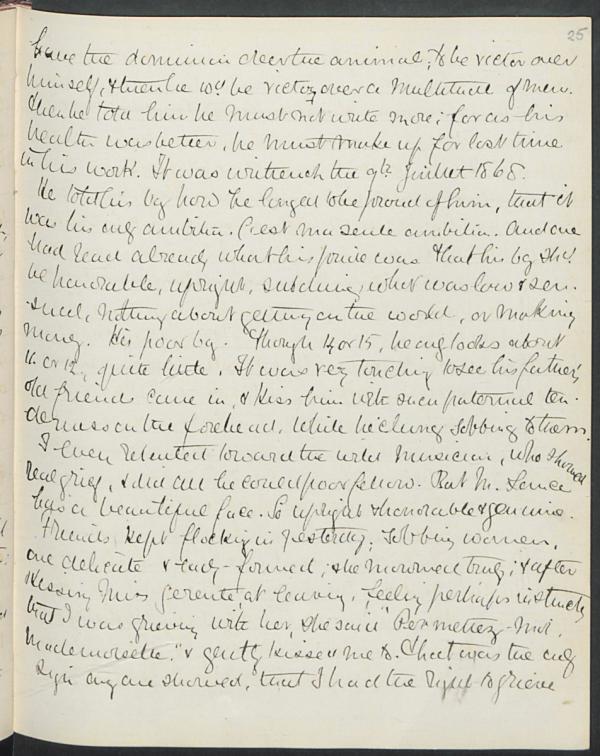 25
have the dominion over the animal, to be victor over
himself, & then he wd. be victor over a multitude of men.
Then he told him he must not write more; for as his
health was better, he must make up for lost time
in his work. It was written the 9th Juillet 1868.
He told his boy how he longed to be proud of him, that it
was his only ambition. C'est ma seule ambition. And one
had read already what his pride was & that his boy shd.
be honorable, upright, subduing what was low & sen-
sual, nothing about getting on the world, or making
money. His poor boy. Though 14 or 15, he only looks about
11 or 12, quite little. It was very touching to see his father's
old friends come in, & kiss him with such paternal ten-
derness on the forehead, while he clung sobbing to them.
I even relented toward the wild musician, who showed
real grief, & did all he could poor fellow. But M.
has a beautiful face. So upright & honorable & genuine.
Friends kept flocking in yesterday; sobbing women,
one delicate & lady-formed; she mourned truly; & after
kissing at leaving, feeling perhaps instinctively
that I was grieving with her, she said "Permettez-moi,
Mademoiselle." & gently kissed me too. That was the only
sign any one showed, that I had the right to grieve